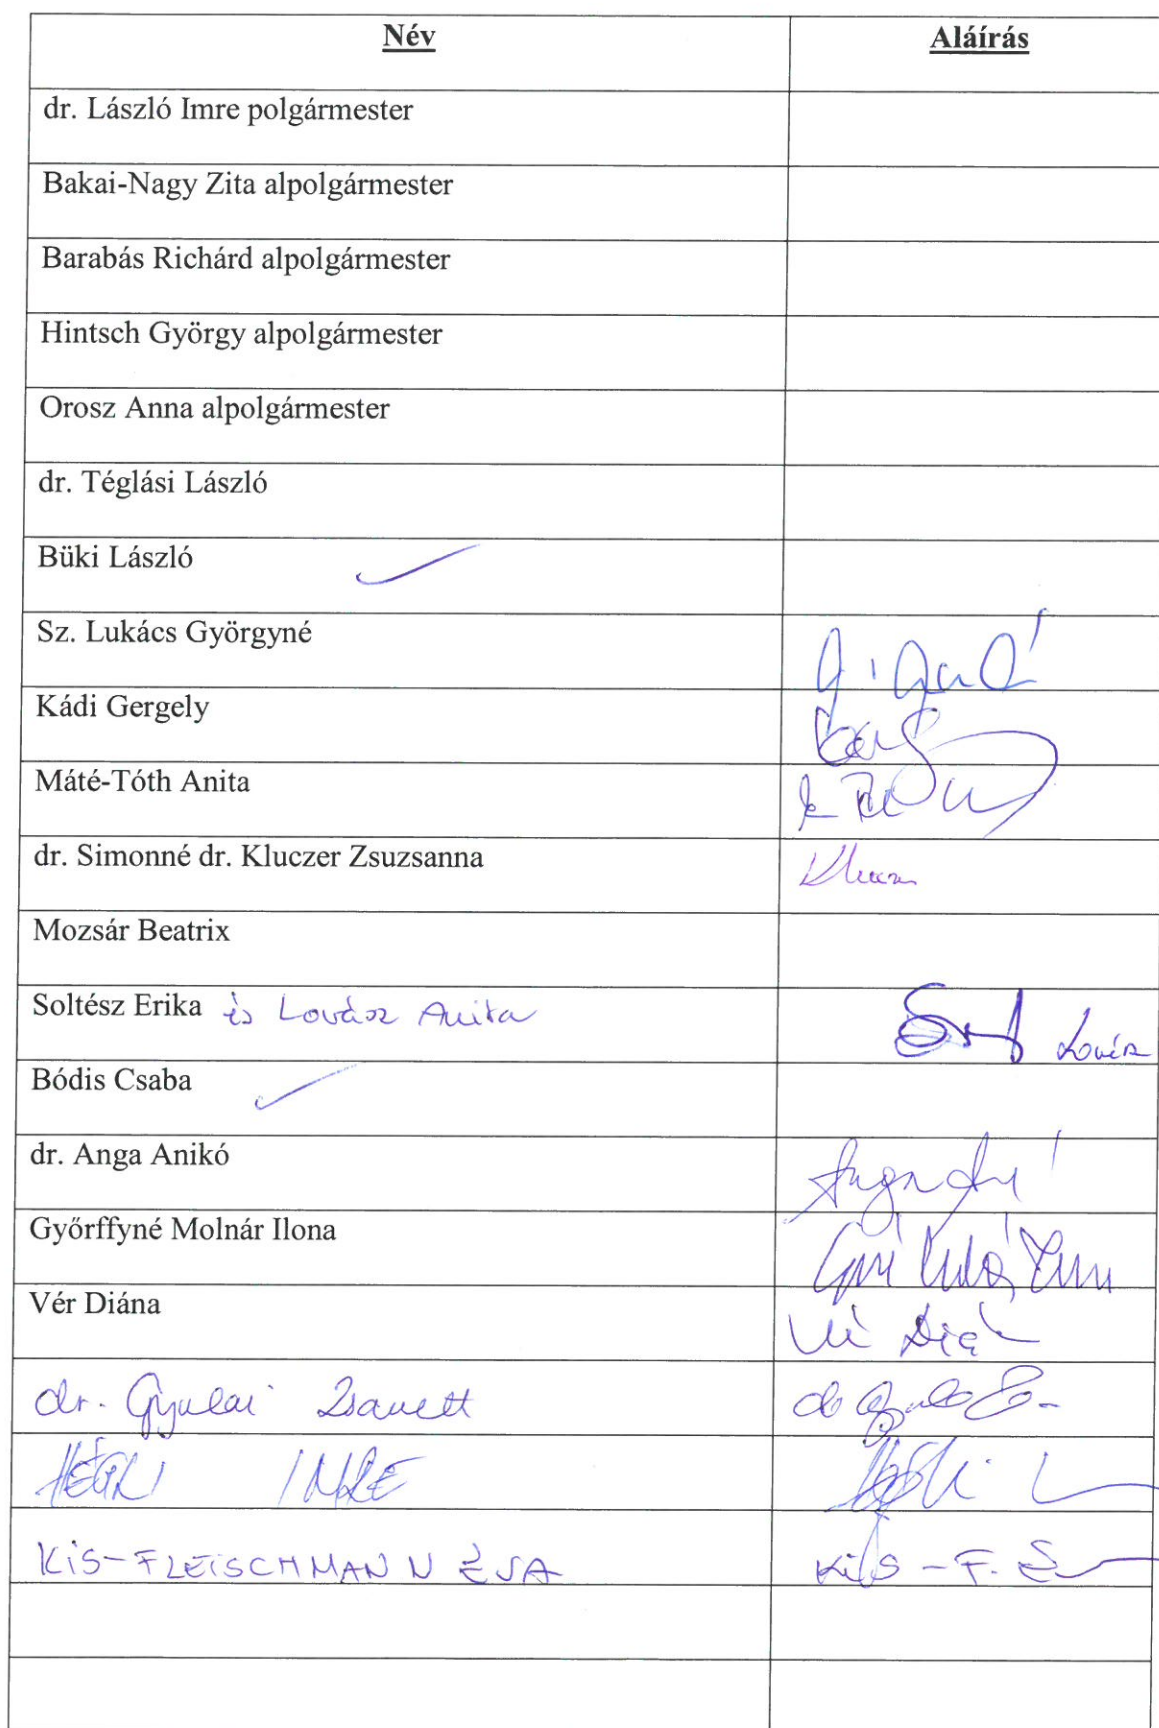 Név Aláírás
dr. László Imre polgármester
Bakai-Nagy Zita alpolgármester
Barabás Richárd alpolgármester
Hintsch György alpolgármester
Orosz Anna alpolgármester
dr. Téglási László
Büki László
Sz. Lukács Györgyné
Kádi Gergely
Máté-Tóth Anita
dr. Simonné dr. Kluczer Zsuzsanna
Mozsár Beatrix
Soltész Erika és Lovász Anita Lovász
Bódis Csaba
dr. Anga Anikó
Győrffyné Molnár Ilona
Vér Diána
dr. Gyulai Zsanett
IMRE
KIS-FLEISCHMANN ÉVA Kis-F. É